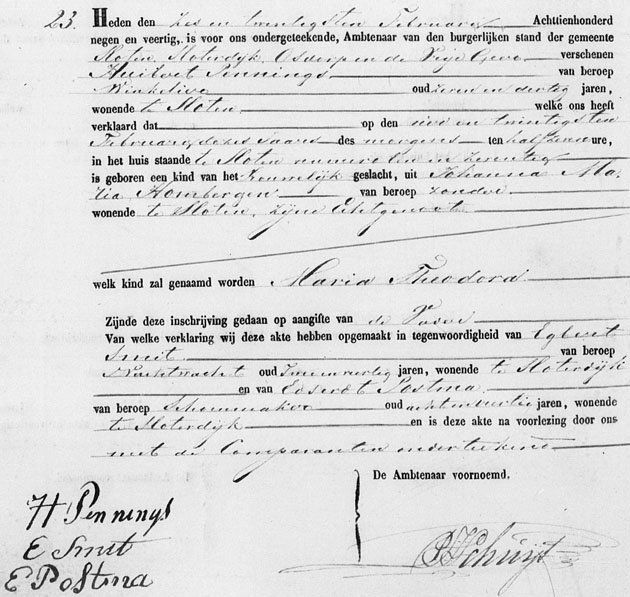 23. Heden den zes en twintigsten Februarij Achttienhonderd
negen en veertig, is voor ons ondergeteekende, Ambtenaar van den burgerlijken stand der gemeente
Sloten Sloterdijk Osdorp en de Vrije Geer verschenen
Huibert Pennings van beroep
Winkelier oud zeven en dertig jaren,
wonende te Sloten welke ons heeft
verklaard dat op den vier en twintigsten
Februarij dezes Jaars des morgens ten half zeven ure,
in het huis staande te Sloten nummero en zeventig
is geboren een kind van het Vrouwelijk geslacht, uit Johanna Ma¬
ria Hombergen van beroep zonder
wonende te Sloten, zijne Echtgenoot
welk kind zal genaamd worden Maria Theodora
Zijnde deze inschrijving gedaan op aangifte van de Vader
Van welke verklaring wij deze akte hebben opgemaakt in tegenwoordigheid van Egbert
Smit van beroep
Nachtwacht oud Twee en veertig jaren, wonende te Sloterdijk
en van Edserdt Postma
van beroep Schoenmaker oud acht en veertig jaren, wonende
te Sloterdijk en is deze akte na voorlezing door ons
met de Comparanten onderteekend
De Ambtenaar voornoemd.
H Pennings
E Smit
E Postma